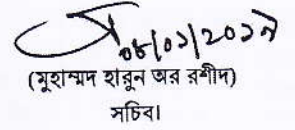 ০৮/০১/২০১৯
(মুহাম্মদ হারুন অর রশীদ)
সচিব।